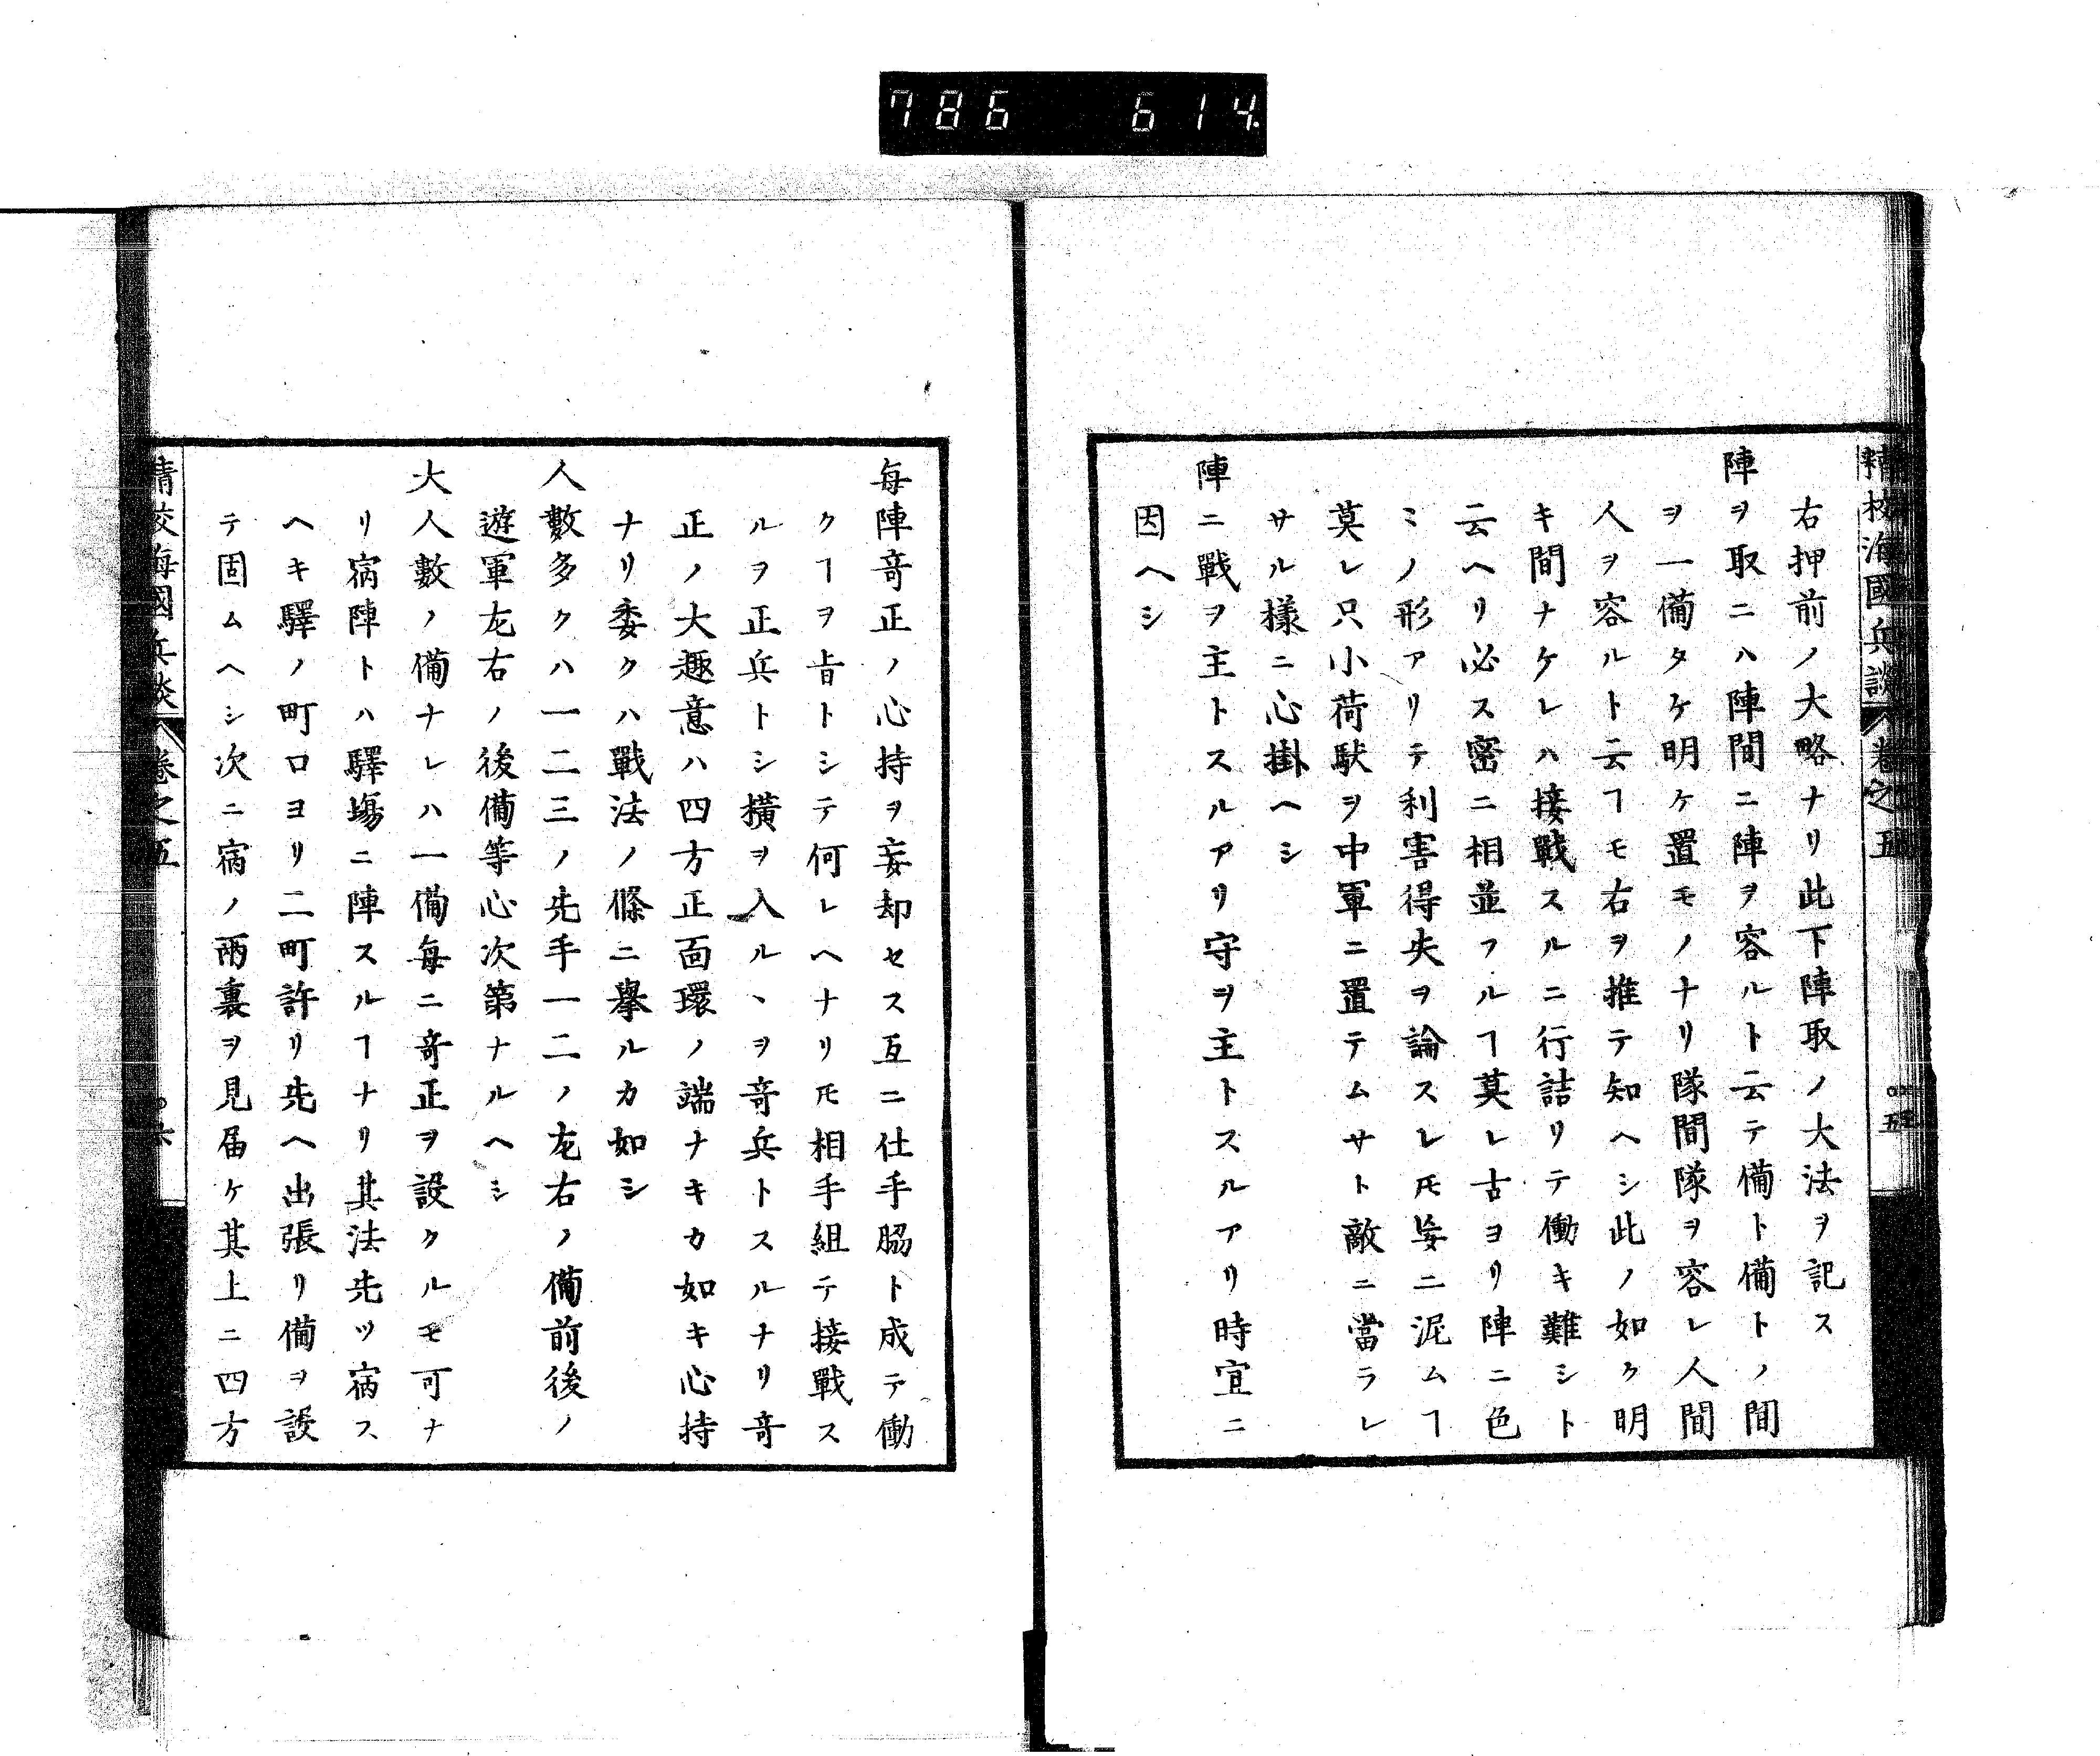 786 614
精校海國兵談 卷之五 五
右押前ノ大略ナリ此下陣取ノ大法ヲ記ス
陣ヲ取ニハ陣間ニ陣ヲ容ルト云テ備ト備トノ間
ヲ一備タケ明ケ置モノナリ隊間隊ヲ容レ人間
人ヲ容ルト云ヿモ右ヲ推テ知ヘシ此ノ如ク明
キ間ナケレハ接戰スルニ行詰リテ働キ難シト
云ヘリ必ス密ニ相並フルヿ莫レ古ヨリ陣ニ色
ミノ形アリテ利害得失ヲ論スレ𪜈妄ニ泥ムヿ
莫レ只小荷駄ヲ中軍ニ置テムサト敵ニ當ラレ
サル樣ニ心掛ヘシ
陣ニ戰ヲ主トスルアリ守ヲ主トスルアリ時宜ニ
因ヘシ
毎陣竒正ノ心持ヲ妄却セス互ニ仕手脇ト成テ働
クヿヲ㫖トシテ何レヘナリ𪜈相手組テ接戰ス
ルヲ正兵トシ橫ヲ入ルヽヲ竒兵トスルナリ竒
正ノ大趣意ハ四方正面環ノ端ナキカ如キ心持
ナリ委クハ戰法ノ條ニ擧ルカ如シ
人數多クハ一二三ノ先手一二ノ左右ノ備前後ノ
遊軍左右ノ後備等心次第ナルヘシ
大人數ノ備ナレハ一備毎ニ竒正ヲ設クルモ可ナ
リ宿陣トハ驛塲ニ陣スルヿナリ其法先ツ宿ス
ヘキ驛ノ町口ヨリ二町許リ先ヘ出張リ備ヲ設
テ固ムヘシ次ニ宿ノ兩裏ヲ見届ケ其上ニ四方
精校海國兵談 卷之五 六